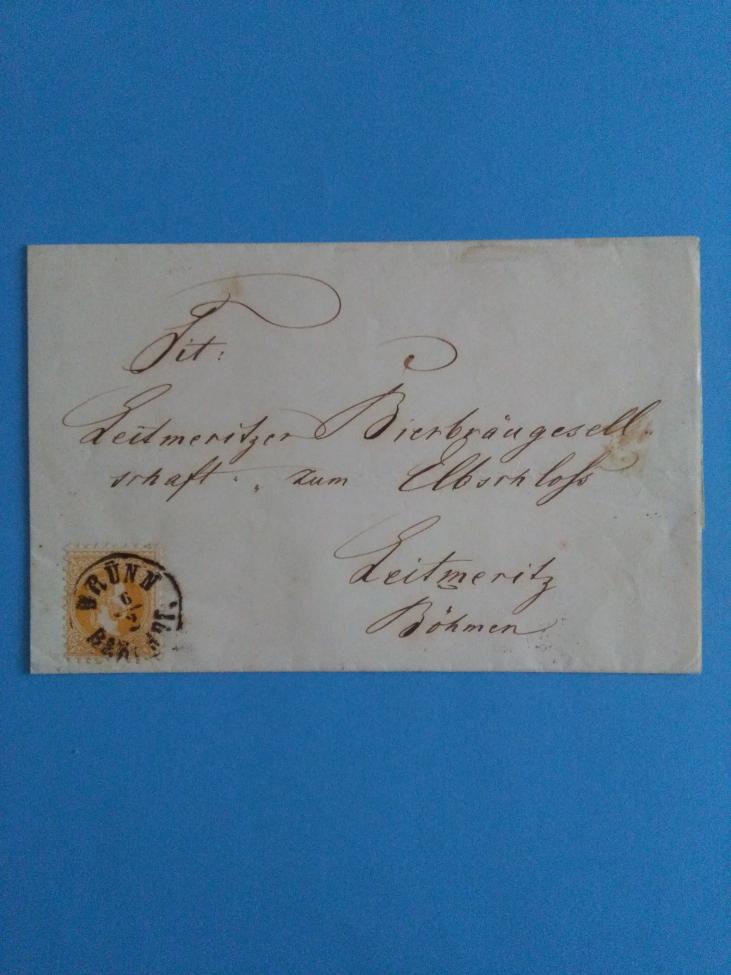 Tit:
Leitmeritzer Bierbräugesell-
schaft „ zum Elbschloss
Leitmeritz
Böhmen
BRÜNN
6/2
BAHNHOF